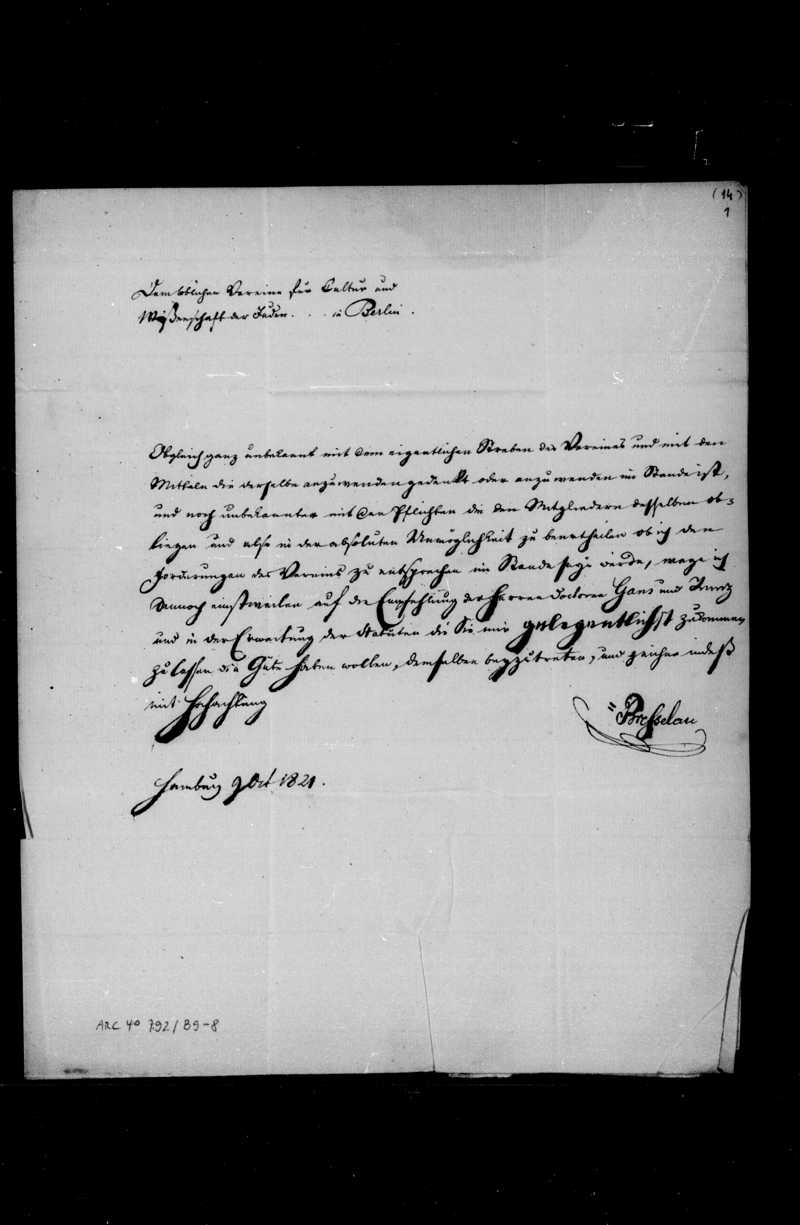 (14)
1
Dem löblichen Vereine für Cultur und
Wißenschaft der Juden . . . in Berlin .
Obgleich ganz unbekannt mit dem eigentlichen Streben des Vereines und mit den
Mitteln die derselbe anzuwenden gedenkt oder anzuwenden im Stande ist,
und noch unbekannter mit den Pflichten die den Mitgliedern desselben ob-
liegen und also in der absoluten Unmöglichkeit zu beurtheilen ob ich den
Forderungen des Vereins zu entsprechen im Stande seyn werde, wage ich
dennoch einstweilen auf die Empfehlung der Herren Doctoren Gans und Zunz
und in der Erwartung der Statuten die Sie mir gelegentlichst zukommen
zu lassen die Güte haben wollen, demselben beyzutreten, und zeichne indeß
mit Hochachtung
Bresselau
Hamburg 9 Oct 1821.
ARC 4o 792/B9-8